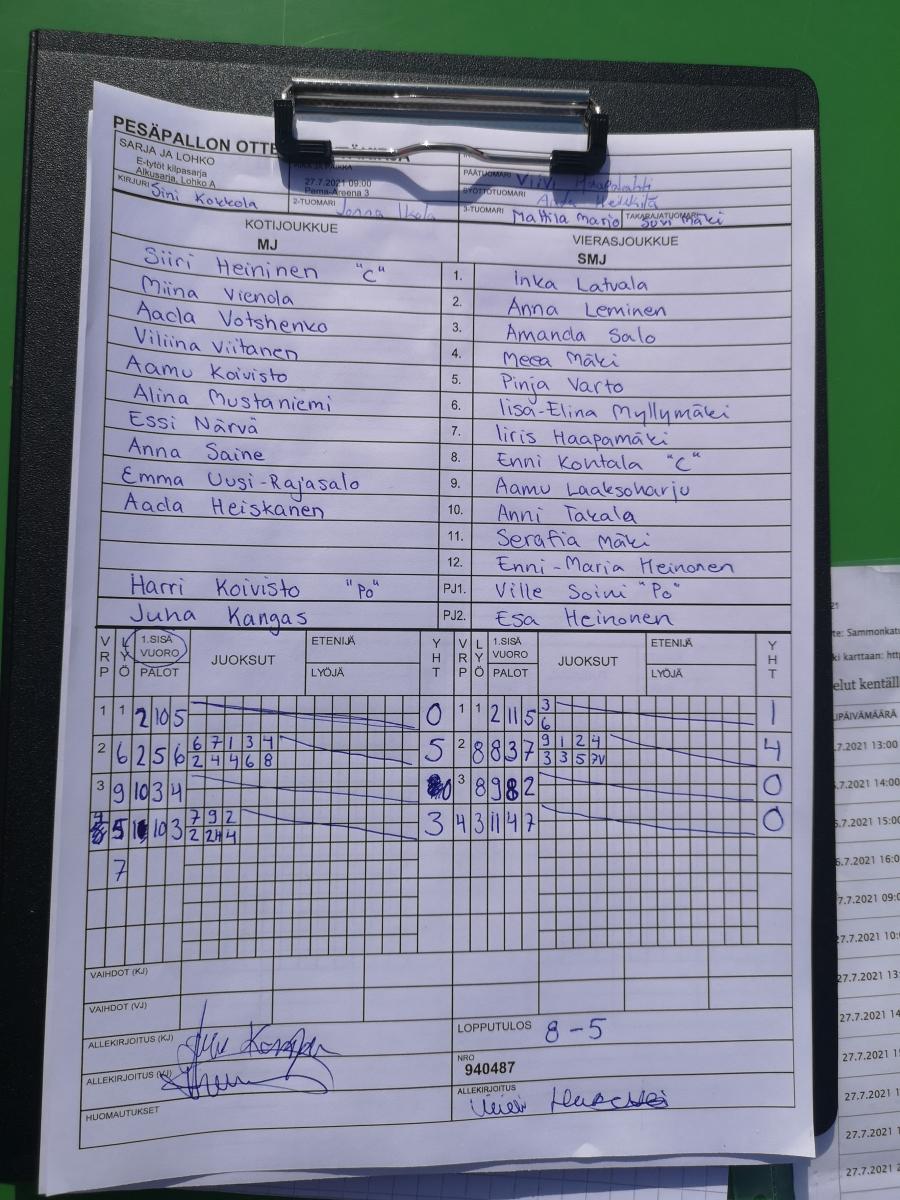 PESÄPALLON OTTE
SARJA JA LOHKO
E-tytöt kilpasarja
Alkusarja, Lohko A
27.7.2021 09:00
Pama-Areena 3
PÄÄTUOMARI Viivi Haapalahti
SYÖTTÖTUOMARI Heikkilä
KIRJURI Sini Kokkola
2-TUOMARI Jonna
3-TUOMARI Mattila Marjo TAKARAJATUOMARI Suvi Mäki
KOTIJOUKKUE
MJ
VIERASJOUKKUE
SMJ
Siiri Heininen "C" 1. Inka Latvala
Miina Vienola 2. Anna Leminen
Aada Votshenko 3. Amanda Salo
Viliina Viitanen 4. Meea Mäki
Aamu Koivisto 5. Pinja Varto
Alina Mustaniemi 6. Iisa-Elina Myllymäki
Essi Närvä 7. Iiris Haapamäki
Anna Saine 8. Enni Kontala "C"
Emma Uusi-Rajasalo 9. Aamu Laaksoharju
Aada Heiskanen 10. Anni Takala
11. Serafia Mäki
12. Enni-Maria Heinonen
Harri Koivisto "Po" PJ1. Ville Soini "Po"
Juha Kangas PJ2. Esa Heinonen
VRP LYÖ 1.SISÄ VUORO PALOT JUOKSUT ETENIJÄ LYÖJÄ YHT VRP LYÖ 1.SISÄ VUORO PALOT JUOKSUT ETENIJÄ LYÖJÄ YHT
1 1 2 10 5 0 1 1 2 11 5 3 1
6
2 6 2 5 6 6 7 1 3 4 5 2 8 8 3 7 9 1 2 4 4
2 4 4 6 8 3 3 5 7V
3 9 10 3 4 0 3 8 9 8 2 0
5 10 3 7 9 2 3 4 3 11 4 7 0
2 4
7
VAIHDOT (KJ)
VAIHDOT (VJ)
ALLEKIRJOITUS (KJ)
LOPPUTULOS 8-5
ALLEKIRJOITUS
NRO
940487
HUOMAUTUKSET
ALLEKIRJOITUS
21
te: Sammonkatu
ki karttaan: http
elut kentäll
IPÄIVÄMÄÄRÄ
.7.2021 13:00
.7.2021 14:00
.7.2021 15:00
.7.2021 16:0
7.7.2021 09:0
27.7.2021 10:
27.7.2021 13:
27.7.2021 14
27.7.2021 1
27.7.2021 1
27.7.2021 1
27.7.2021 2